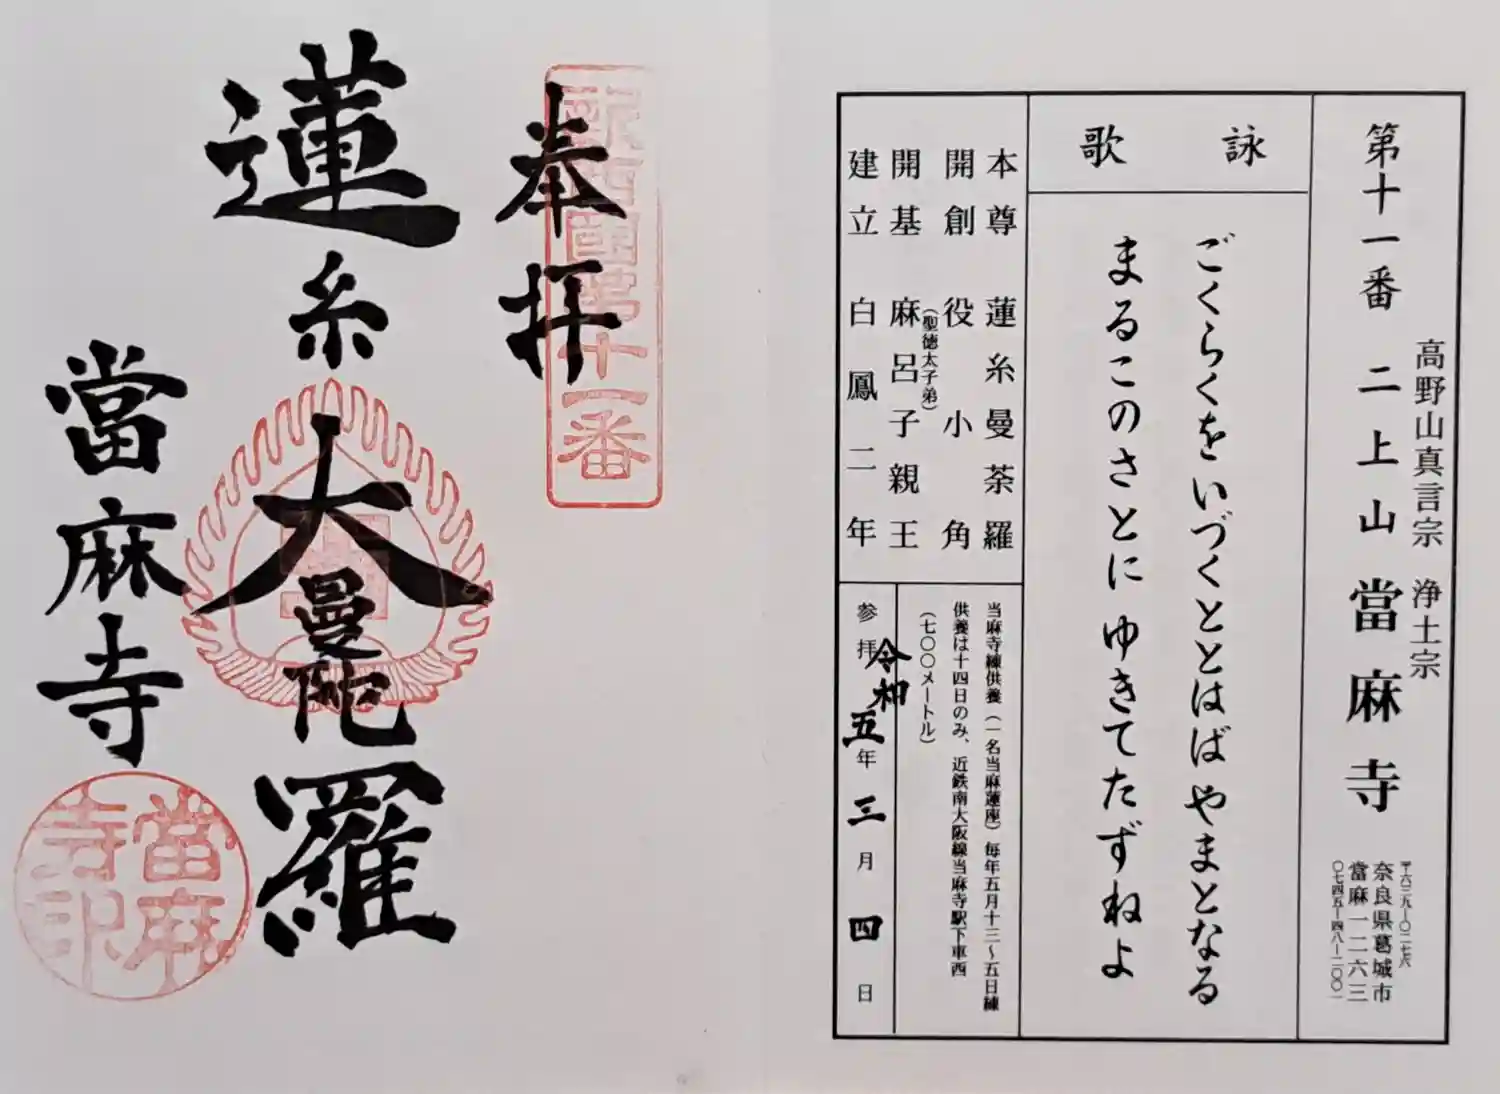 奉拝
蓮糸大曼陀羅
當麻寺
新西国第十一番
當麻寺印
第十一番 二上山 當麻寺
高野山真言宗 浄土宗
〒六三九−〇二七六
奈良県葛城市
當麻一二六三
〇七四五−四八−二〇〇一
詠歌
ごくらくをいづくととはばやまとなる
まるこのさとにゆきてたずねよ
本尊 蓮糸曼荼羅
開創 役小角
(聖徳太子弟)
開基 麻呂子親王
建立 白鳳二年
当麻寺練供養(一名当麻蓮座)毎年五月十三〜五日練
供養は十四日のみ、近鉄南大阪線当麻寺駅下車西
(七〇〇メートル)
参拝 令和五年三月四日